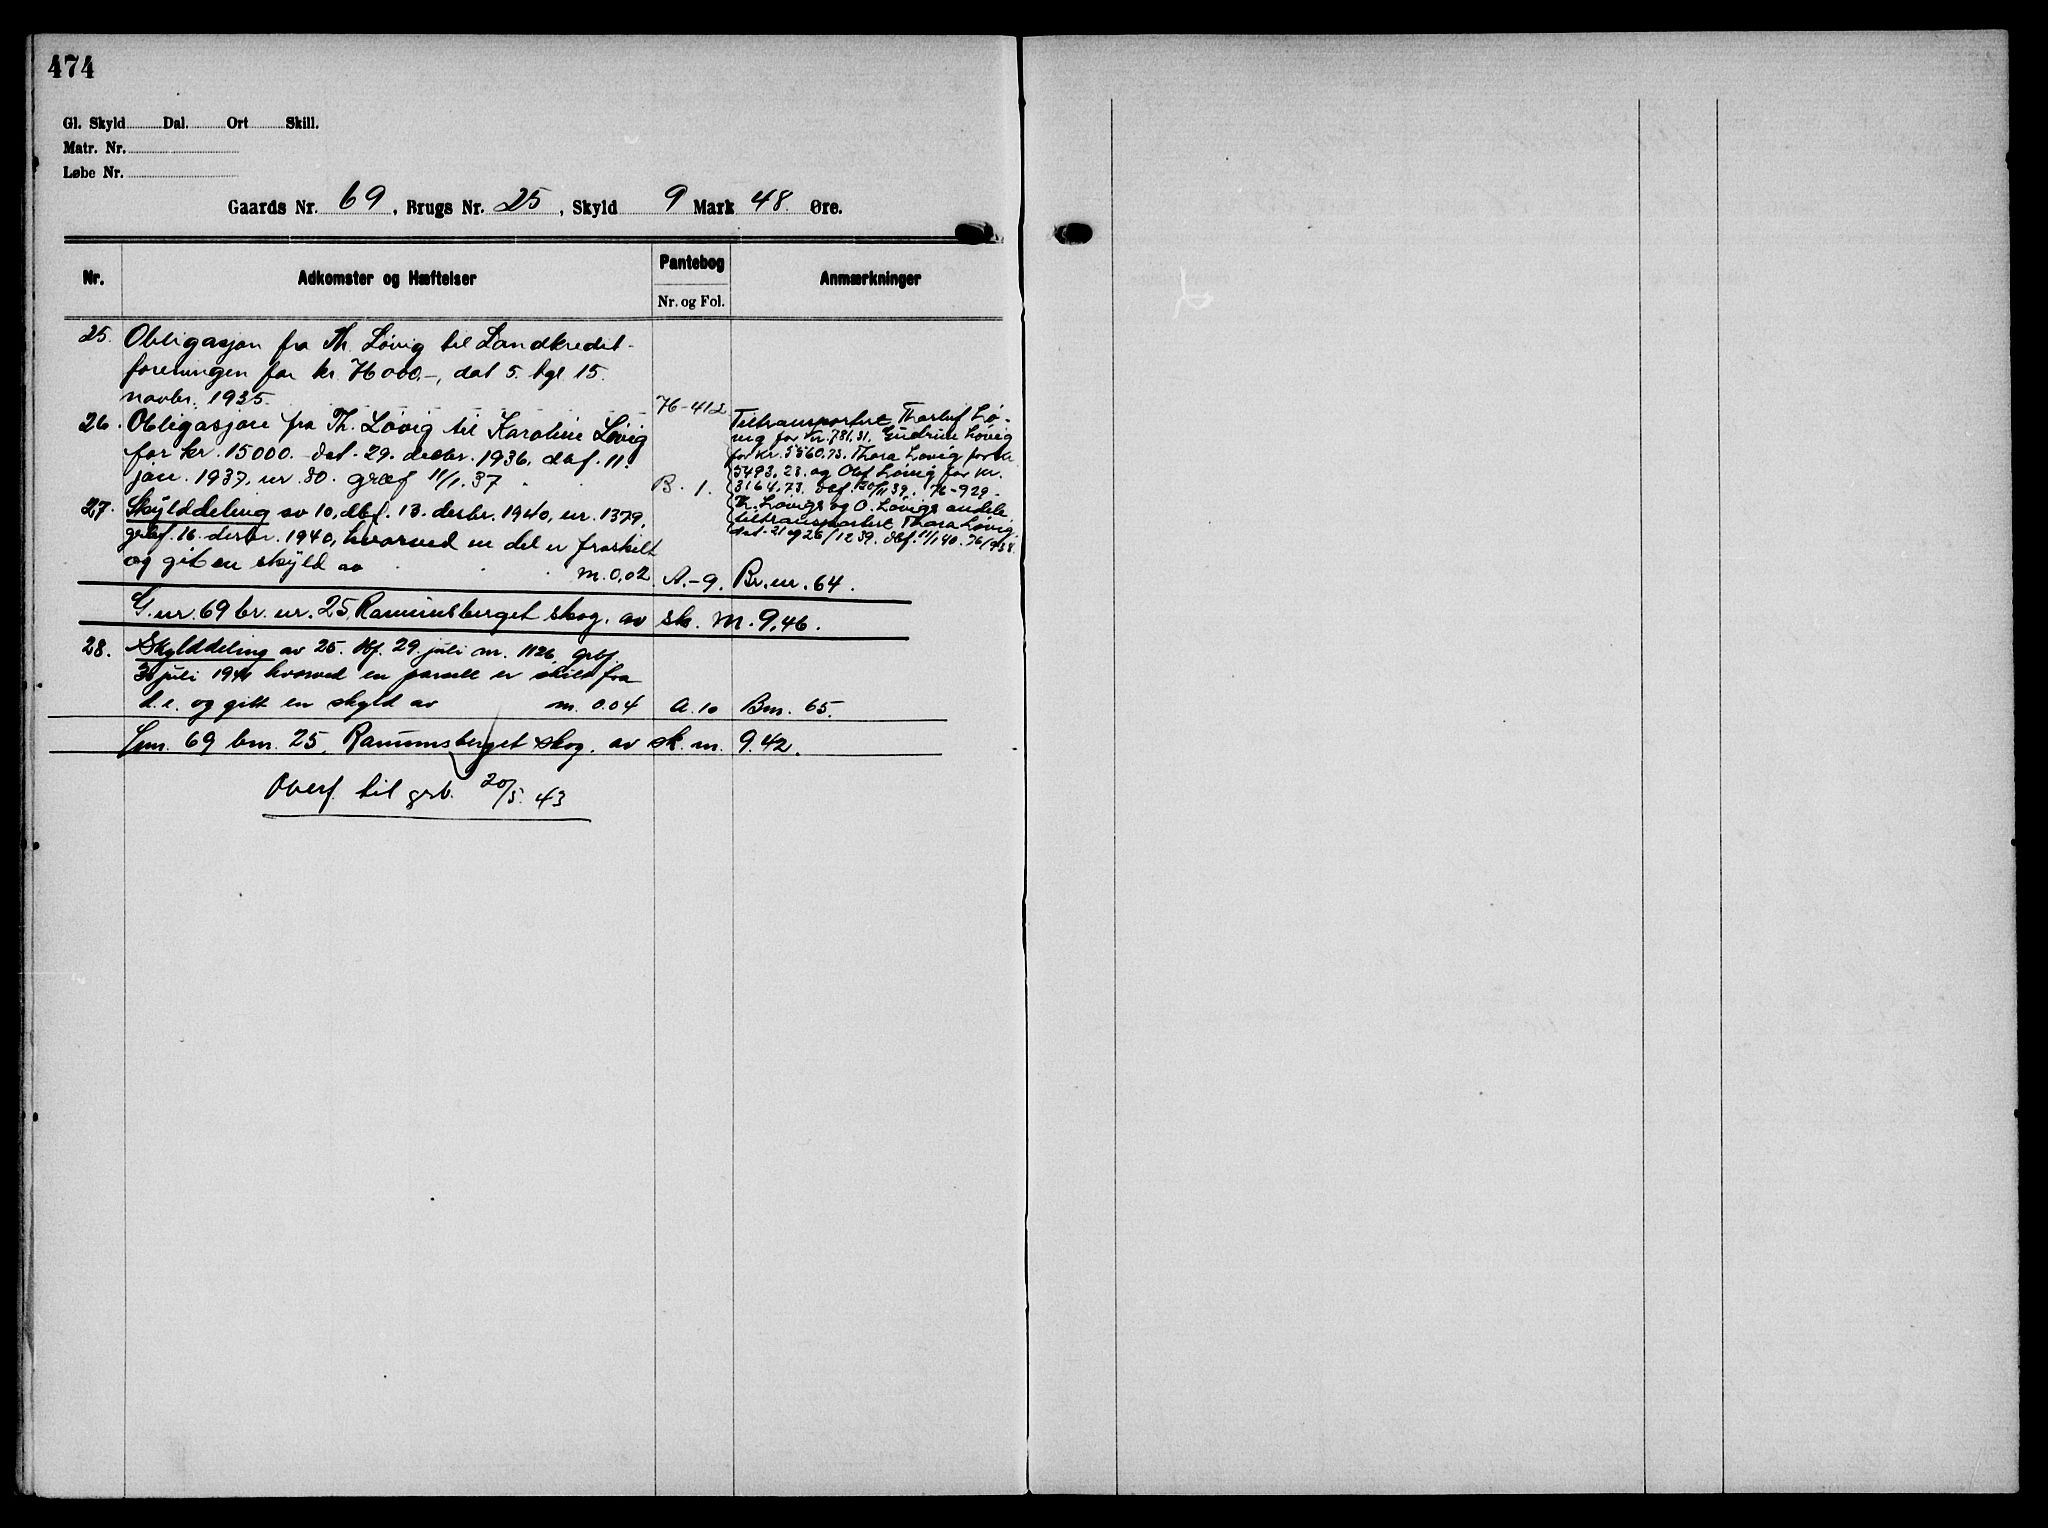 474
Gl. Skyld Dal. Ort Skill.
Matr. Nr.
Løbe Nr.
Gaards Nr. 69, Brugs Nr. 25, Skyld 9 Mark 48 Øre.
Nr. Adkomster og Hæftelser Pantebog Anmærkninger
Nr. og Fol.
25. Obligasjon fra Th. Løvig til Landkredit-
foreningen for kr. 76000.-, dat 5. tgl 15.
novbr. 1935. 76-412
26. Obligasjon fra Th. Løvig til Karoline Løvig
for kr. 15000.- dat. 29. desbr. 1936, dbf. 11.
jan. 1937, nr. 80. grbf 11/1.37 B. 1.
Tiltransportert Thorluf Lø-
vig for kr. 781.31. Gudrun Løvig
for kr. 5560.73. Thora Løvig for kr
5493.23. og Olof Løvig for kr.
3164.73. dbf. 20/11 39. 76-929-
Th. Løvigs og O. Løvigs andele
tiltransportert Thora Løvig
dat. 21 og 26/12 39. dbf. 11/1 40. 76/958.
27. Skylddeling av 10, dbf. 13. desbr. 1940, nr. 1379,
grbf. 16. desbr. 1940, hvorved en del er fraskilt
og git en skyld av m. 0,02 A.-9. Br. nr. 64.
G. nr. 69 br. nr. 25 Ramunsberget skog. av sk. m. 9,46.
28. Skylddeling av 25. dbf. 29. juli nr. 1126, grbf.
30 juli 1941 hvorved en parsell er skilt fra
d.e. og gitt en skyld av m. 0.04 A. 10 Bnr. 65.
Gnr. 69 bnr. 25, Ramumsberget skog. av sk. m. 9.42.
Overf. til grb. 20/5. 43